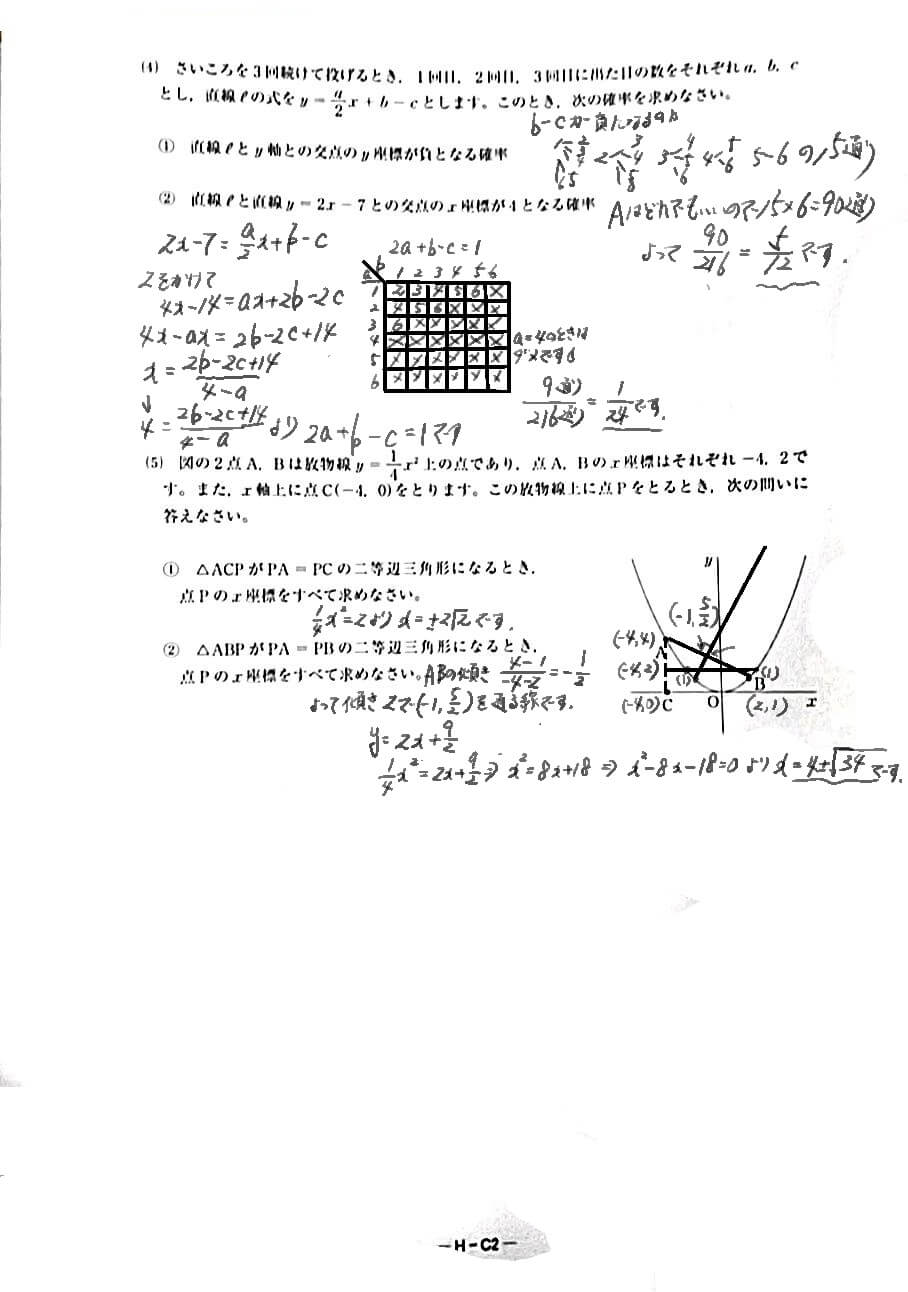 (4) さいころを3回続けて投げるとき，1回目，2回目，3回目に出た目の数をそれぞれa，b，c
とし，直線ℓの式をy＝a/2 x＋b−cとします。このとき，次の確率を求めなさい。
b-cが負になるのは
① 直線ℓとy軸との交点のy座標が負となる確率
1 2 3 4 5 6 2 3 4 5 6 3 4 5 6 4 5 6 5-6 の15通り
② 直線ℓと直線y＝2x−7との交点のx座標が4となる確率
Aはどれでもいいので15×6=90通り
よって 90/216 = 5/12 です.
2x-7= a/2 x+b-c
2をかけて
4x-14=ax+2b-2c
4x-ax=2b-2c+14
x= 2b-2c+14/4-a
↓
4= 2b-2c+14/4-a より 2a+b-c=1です
2a+b-c=1
a b 1 2 3 4 5 6
1 2 3 4 5 6 ×
2 4 5 6 × × ×
3 6 × × × × ×
4 × × × × × ×
5 × × × × × ×
6 × × × × × ×
a=4のときは
ダメですよ
9通り/216通り = 1/24 です.
(5) 図の2点A，Bは放物線y＝1/4 x²上の点であり，点A，Bのx座標はそれぞれ−4，2で
す。また，x軸上に点C(−4，0)をとります。この放物線上に点Pをとるとき，次の問いに
答えなさい。
① △ACPがPA＝PCの二等辺三角形になるとき，
点Pのx座標をすべて求めなさい。
1/4 x²=2より x=±2√2です.
② △ABPがPA＝PBの二等辺三角形になるとき，
点Pのx座標をすべて求めなさい。
ABの傾き 4-1/-4-2 =- 1/2
よって傾き2で(-1, 5/2)を通る線です.
y=2x+ 9/2
1/4 x²=2x+ 9/2 ⇒ x²=8x+18 ⇒ x²-8x-18=0 より x=4±√34 です.
y
(-1, 5/2)
(-4,4)
A
(-4,2)
(1)
(1)
B
(-4,0) C
O
(2,1)
x
—H-C2—